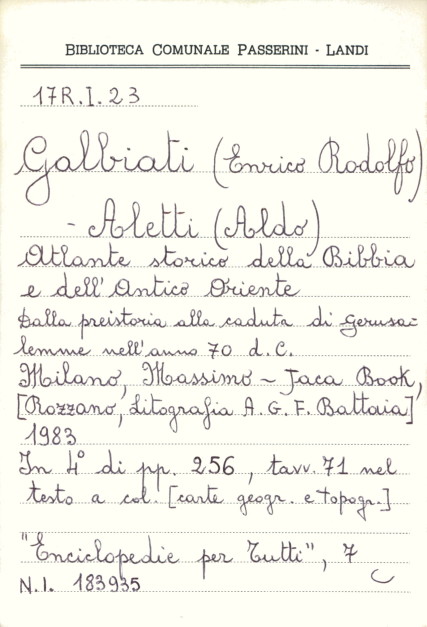 BIBLIOTECA COMUNALE PASSERINI - LANDI
17R.I.23
Galbiati (Enrico Rodolfo)
- Aletti (Aldo)
Atlante storico della Bibbia
e dell'Antico Oriente
Dalla preistoria alla caduta di Gerusa=
lemme nell'anno 70 d.C.
Milano, Massimo - Jaca Book,
[Rozzano, Litografia A.G.F. Battaia]
1983
In 4° di pp. 256, tavv. 71 nel
testo a col. [carte geogr. e topogr.]
"Enciclopedie per Tutti", 7
N.I. 183935